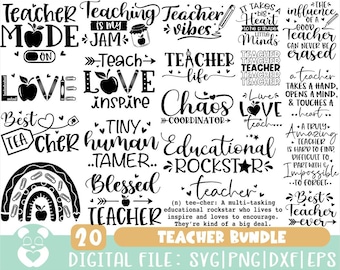 Teacher
MODE
ON
Teaching
IS MY
JAM
Teacher
vibes
IT TAKES A
BIG
Heart
TO TEACH
Little
Minds
The
influence
OF A GOOD
Teacher
CAN NEVER BE
erased
LOVE
Teach
LOVE
inspire
Teacher
life
TEACHER
TEACHER
TEACHER
TEACHER
a teacher
TAKES A HAND,
OPENS A MIND,
& TOUCHES A
heart
Best
TEA
CHER
TINY
human
TAMER
Chaos
COORDINATOR
Live
Love
teach
A TRULY
Amazing
TEACHER
IS HARD TO FIND
DIFFICULT TO
PART WITH &
Impossible
TO FORGET
Blessed
TEACHER
Educational
ROCKSTAR
teacher
(n) tee-cher: A multi-tasking
educational rockstar who lives to
inspire and loves to encourage.
They're kind of a big deal.
Best
Teacher
ever
20
TEACHER BUNDLE
DIGITAL FILE: SVG|PNG|DXF|EPS